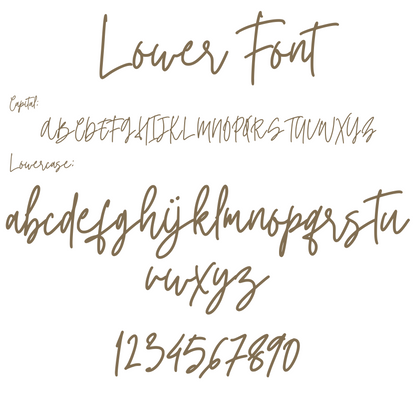 Lower Font
Capital:
ABCDEFGHIJKLMNOPQRSTUVWXYZ
Lowercase:
abcdefghijklmnopqrstu
vwxyz
1234567890